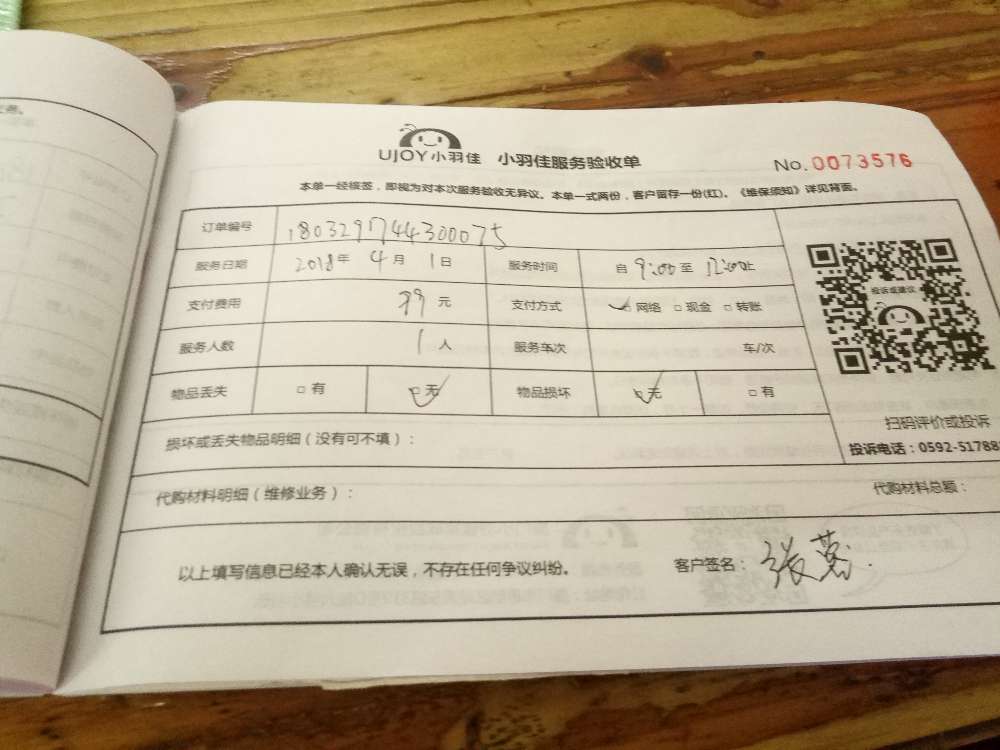 UJOY小羽佳 小羽佳服务验收单 No.0073576
本单一经核签，即视为对本次服务验收无异议。本单一式两份，客户留存一份(红)。《维保须知》详见背面。
订单编号 1803291744300075
服务日期 2018年 4月 1日 服务时间 自 9:00 至 12:00止
支付费用 元 支付方式 ☑网络 □现金 □转账
服务人数 1人 服务车次 车/次
物品丢失 □有 ☑无 物品损坏 ☑无 □有
投诉或建议
扫码评价或投诉
投诉电话：0592-51788
损坏或丢失物品明细（没有可不填）：
代购材料明细（维修业务）： 代购材料总额：
以上填写信息已经本人确认无误，不存在任何争议纠纷。 客户签名：张